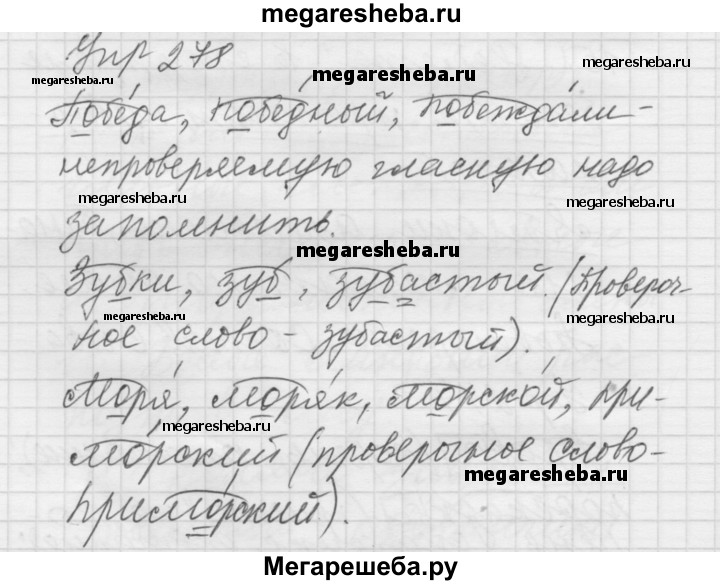 megaresheba.ru
Упр 278
megaresheba.ru
megaresheba.ru
megaresheba.ru
Победа, победный, побеждали -
непроверяемую гласную надо
megaresheba.ru
megaresheba.ru
запомнить.
megaresheba.ru
Зубки, зуб, зубастый. (Провероч-
megaresheba.ru
megaresheba.ru
ное слово - зубастый).
Моря, моряк, морской, при-
megaresheba.ru
морский (проверочное слово-
megaresheba.ru
приморский).
Мегарешеба.ру